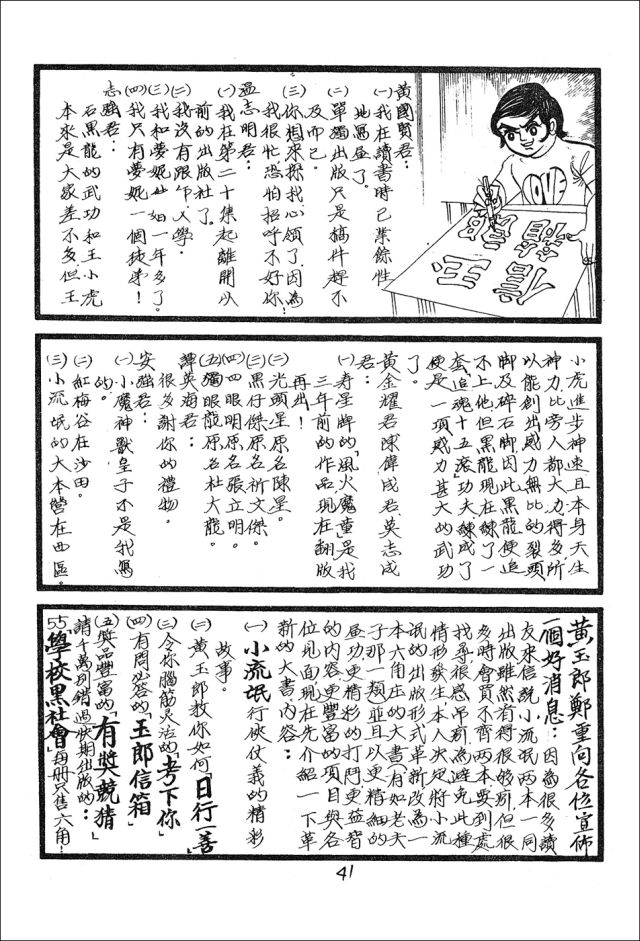 黃國賢君：
㈠我在讀書時已業餘性
地寫歪了。
㈡單獨出版只是稿件趕不
及而已。
㈢你想來探我心領了，因為
我很忙恐怕招呼不好你！
溫志明君：
㈠我在第二十集起離開以
前的出版社了。
㈡我沒有跟乍人學。
㈢我和夢妮姐一年多了。
㈣我只有夢妮一個徒弟！
志強君：
石黑龍的武功和王小虎
本來是大家差不多，但王
小虎進步神速且本身天生
神力比旁人都大力得多，所
以能創出威力無比的裂頭
脚及碎石脚，因此黑龍便追
不上他，但黑龍現在練了一
套「追魂十五滾」功夫練成了
便是一項威力甚大的武功
了。
黃金耀君陳偉成君吳志成
君：
㈠寿星牌的「風火魔童」是我
三年前的作品現在翻版
再出！
㈡光頭星原名陳星。
㈢黑仔傑原名祈文傑。
㈣四眼明原名張立明。
㈤獨眼龍原名杜大龍。
譚英海君：
很多謝你的禮物。
安強君：
㈠小魔神獸皇子不是我寫
的。
㈡紅梅谷在沙田。
㈢小流氓的大本營在西區。
黃玉郎鄭重向各位宣佈
一個好消息：因為很多讀
友來信說小流氓兩本一同
出版雖然看得很够癮，但很
多時會買不齊兩本，要到處
找尋，很感吊癮，為避免此種
情形發生，本人決定將小流
氓的出版形式革新，改為一
本六角庄的大書，有如老夫
子那一類，並且以更精細的
画功，更精彩的打鬥，更益智
的內容，更豐富的項目與各
位見面，現在先介紹一下革
新的大書內容：
㈠小流氓行俠仗義的精彩
故事。
㈡黃玉郎教你如何「日行一善」
㈢令你腦筋灵活的「考下你」
㈣有問必答的「玉郎信箱」
㈤獎品豐富的「有獎競猜」
請千萬別錯過快期出版的：
55「學校黑社會」每冊只售六角！
LOVE
龍
霸
信
玉
41